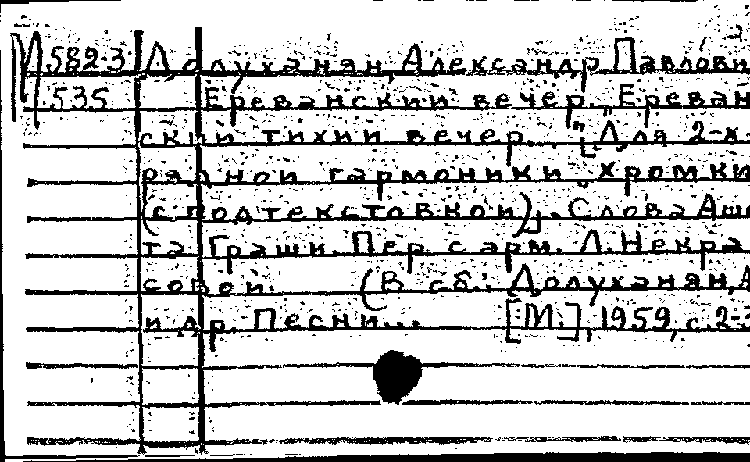 М 582-3 Долуханян, Александр Павлови
535 Ереванский вечер. „Ереван
ский тихий вечер... "[Для 2-х
рядной гармоники „хромки
(с подтекстовкой)]. Слова Ашо
та Граши. Пер. с арм. Л. Некра
совой. (В сб.: Долуханян, А
и др. Песни... [М.], 1959, с. 2-3